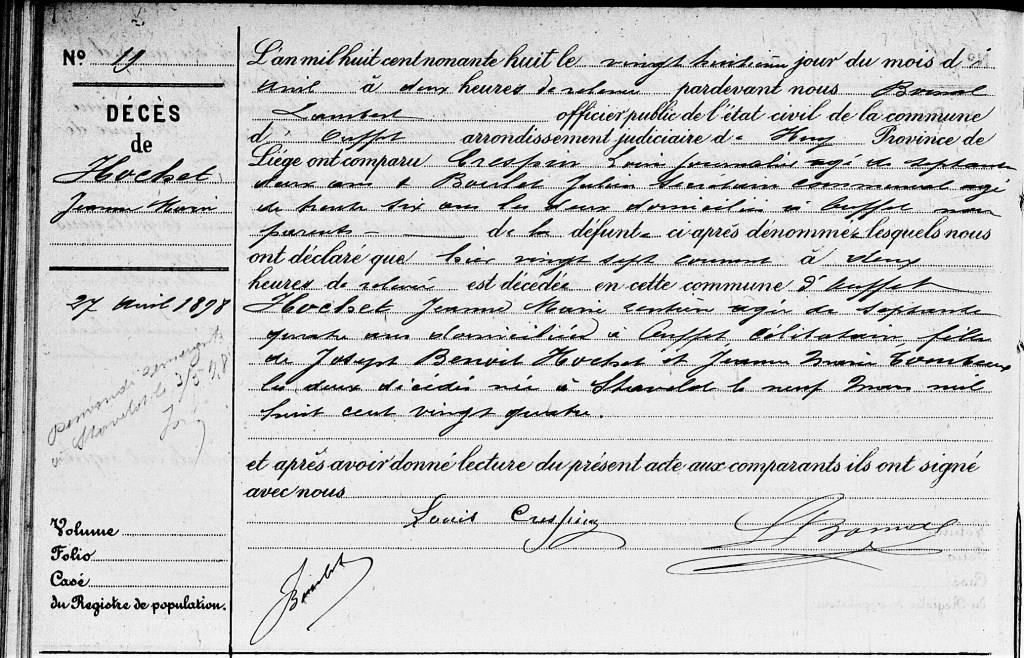 Nº 19
DÉCÈS
de
Hochet
Jeanne Marie
27 avril 1898
Volume
Folio
Casé
du Registre de population.
L'an mil huit cent nonante huit le vingt huitième jour du mois d'
avril à deux heures de relevée pardevant nous
Lambert officier public de l'état civil de la commune
d' Ouffet arrondissement judiciaire de Huy Province de
Liége ont comparu Crespin Louis journalier agé de septante
deux ans & Boulet Julien Secrétaire communal agé
de trente six ans les deux domiciliés à Ouffet non
parents de la défunte ci-après dénommée lesquels nous
ont déclaré que hier vingt sept courant à deux
heures de relevée est décédée en cette commune d'Ouffet
Hochet Jeanne Marie rentière agée de septante
quatre ans domiciliée à Ouffet célibataire fille
de Joseph Benoit Hochet et Jeanne Marie
les deux décédés née à Stavelot le neuf Mars mil
huit cent vingt quatre.
et après avoir donné lecture du présent acte aux comparants ils ont signé
avec nous
Louis Crespin
Boulet